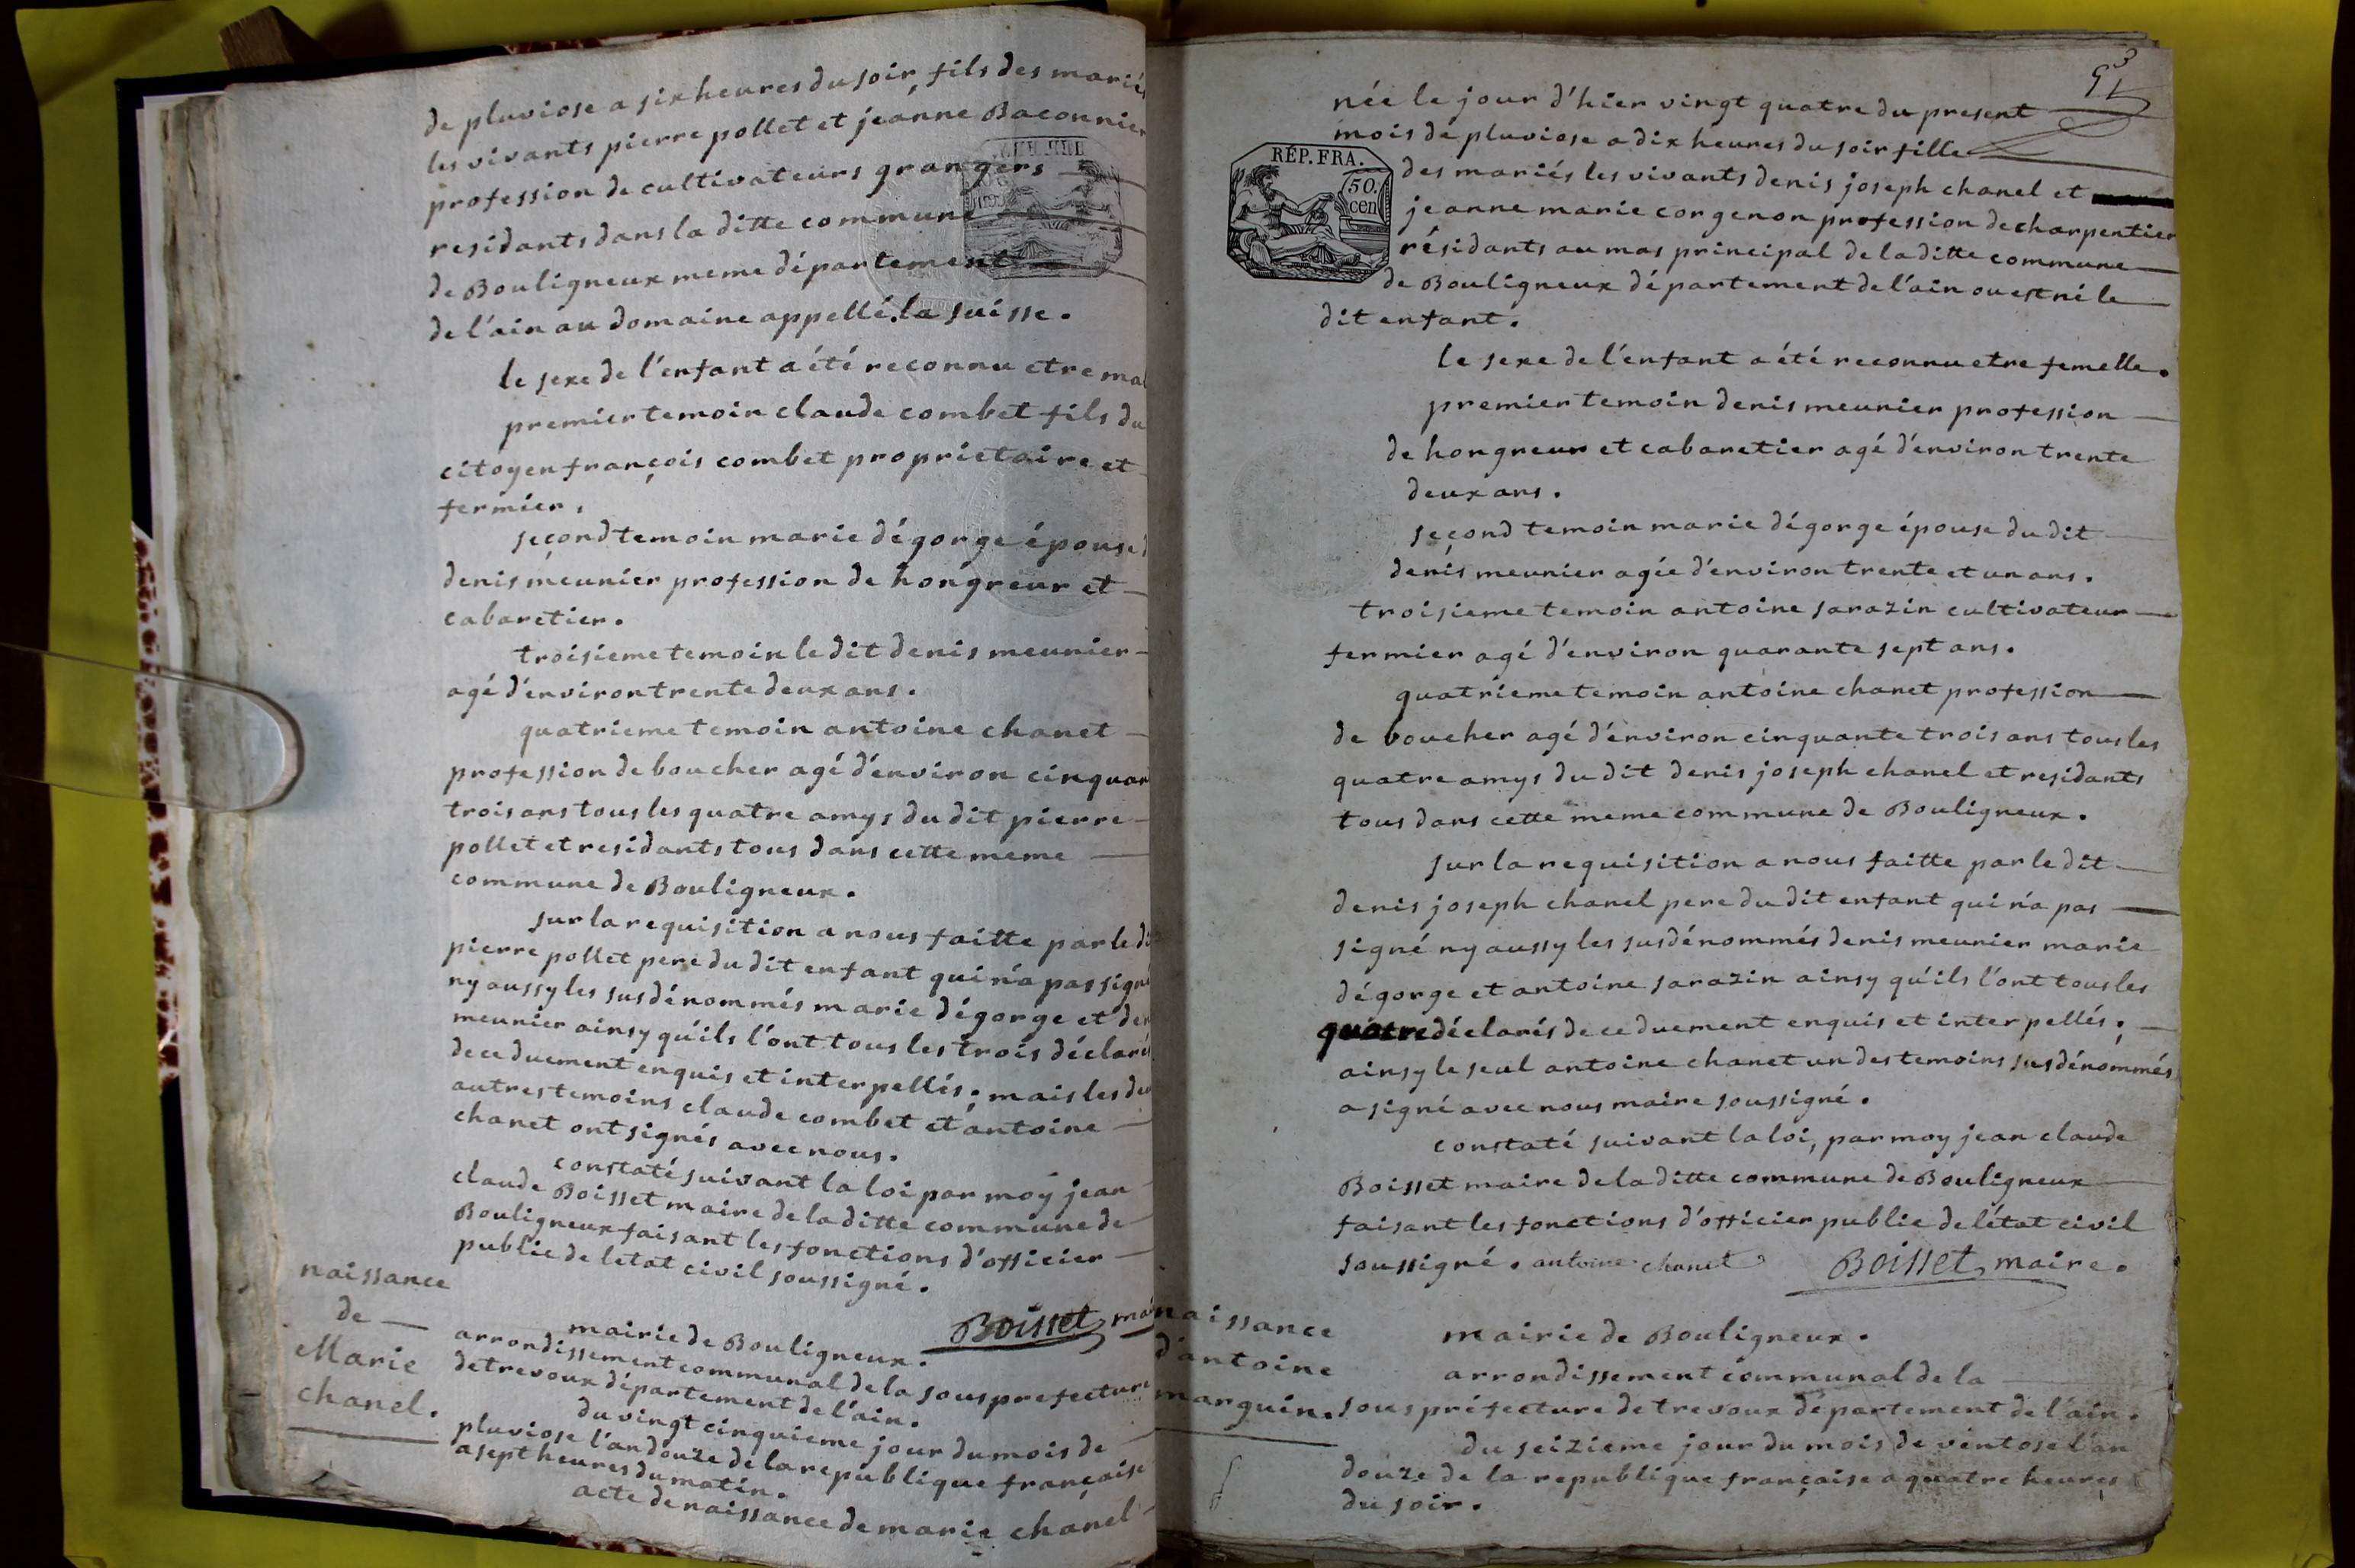 de pluviose a six heures du soir, fils des mariés
les vivants pierre pollet et jeanne Baconnier
profession de cultivateurs grangers
residants dans la ditte commune
de Bouligneux meme département
de l'ain au domaine appellé la suisse.
le sexe de l'enfant a été reconnu etre mal
premier temoin claude combet fils du
citoyen françois combet proprietaire et
fermier.
second temoin marie dégorge épouse
denis meunier profession de hongreur et
cabaretier.
troisieme temoin le dit denis meunier
agé d'environ trente deux ans.
quatrieme temoin antoine chanet
profession de boucher agé d'environ cinquan
trois ans tous les quatre amys du dit pierre
pollet et residants tous dans cette meme
commune de Bouligneux.
sur la requisition a nous faitte par le di
pierre pollet pere du dit enfant qui n'a pas signé
ny aussy les susdénommés marie dégorge et den
meunier ainsy qu'ils l'ont tous les trois déclarés
de ce duement enquis et interpellés; mais les deu
autres temoins claude combet et antoine
chanet ont signés avec nous.
constaté suivant la loi par moy jean
claude Boisset maire de la ditte commune de
Bouligneux faisant les fonctions d'officier
public de letat civil soussigné.
Boisset mai
naissance
de
Marie
chanel.
mairie de Bouligneux.
arrondissement communal de la sous prefecture
de trevoux département de l'ain.
du vingt cinquieme jour du mois de
pluviose l'an douze de la republique française
a sept heures du matin.
acte de naissance de marie chanel
née le jour d'hier vingt quatre du present
mois de pluviose a dix heures du soir fille
RÉP. FRA.
50.
cen
des mariés les vivants denis joseph chanel et
jeanne marie corgenon profession de charpentier
résidants au mas principal de la ditte commune
de Bouligneux département de l'ain ou est né le
dit enfant.
le sexe de l'enfant a été reconnu etre femelle.
premier temoin denis meunier profession
de hongreur et cabaretier agé d'environ trente
deux ans.
second temoin marie dégorge épouse du dit
denis meunier agée d'environ trente et un ans.
troisieme temoin antoine sarazin cultivateur
fermier agé d'environ quarante sept ans.
quatrieme temoin antoine chanet profession
de boucher agé d'environ cinquante trois ans tous les
quatre amys du dit denis joseph chanel et residants
tous dans cette meme commune de Bouligneux.
sur la requisition a nous faitte par le dit
denis joseph chanel pere du dit enfant qui n'a pas
signé ny aussy les susdénommés denis meunier marie
dégorge et antoine sarazin ainsy qu'ils l'ont tous les
quatre déclarés de ce duement enquis et interpellés;
ainsy le seul antoine chanet un des temoins susdénommés
a signé avec nous maire soussigné.
constaté suivant la loi, par moy jean claude
Boisset maire de la ditte commune de Bouligneux
faisant les fonctions d'officier public de létat civil
soussigné. antoine chanet Boisset, maire.
naissance
d'antoine
marguin.
mairie de Bouligneux.
arrondissement communal de la
sous préfecture de trevoux département de l'ain.
du seizieme jour du mois de ventose l'an
douze de la republique française a quatre heures
du soir.